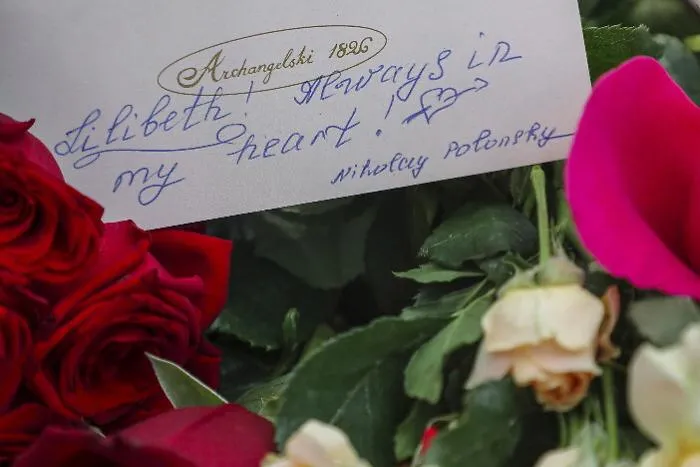 Archangelski 1826
Lilibeth! Always in
my heart!
Nikolay Polonsky